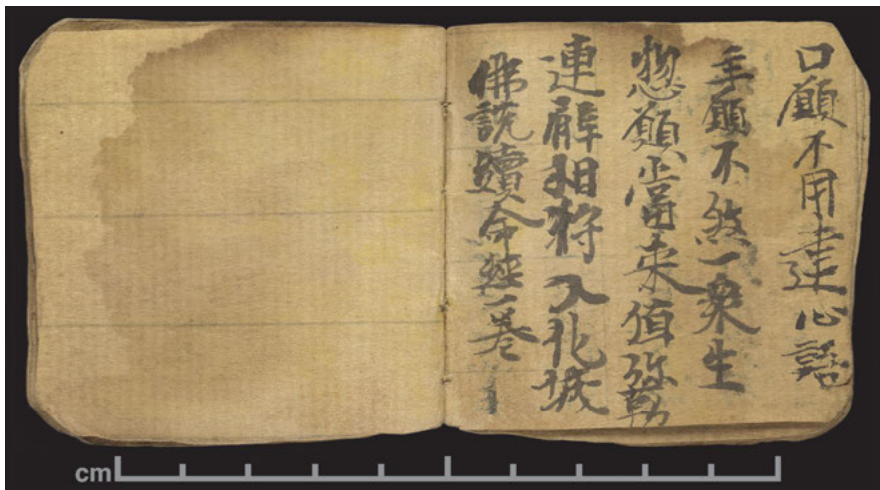 口願不用違心語
手願不煞一衆生
惣願當来值弥勒
連臂相將入化城
佛説續命經一卷
cm